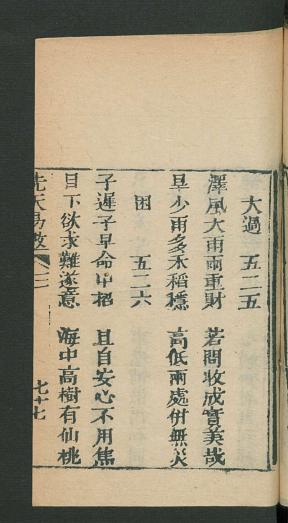 大過　五二五
澤風大雨雨重財　若問收成實美哉
旱少雨多禾稻穩　高低兩處併無災
困　五二六
子遲子早命中招　且自安心不用焦
目下欲求難遂意　海中高樹有仙桃
先天易數　卷二　七十七